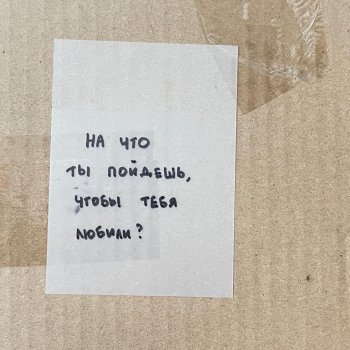 НА ЧТО
ТЫ ПОЙДЕШЬ,
ЧТОБЫ ТЕБЯ
ЛЮБИЛИ?